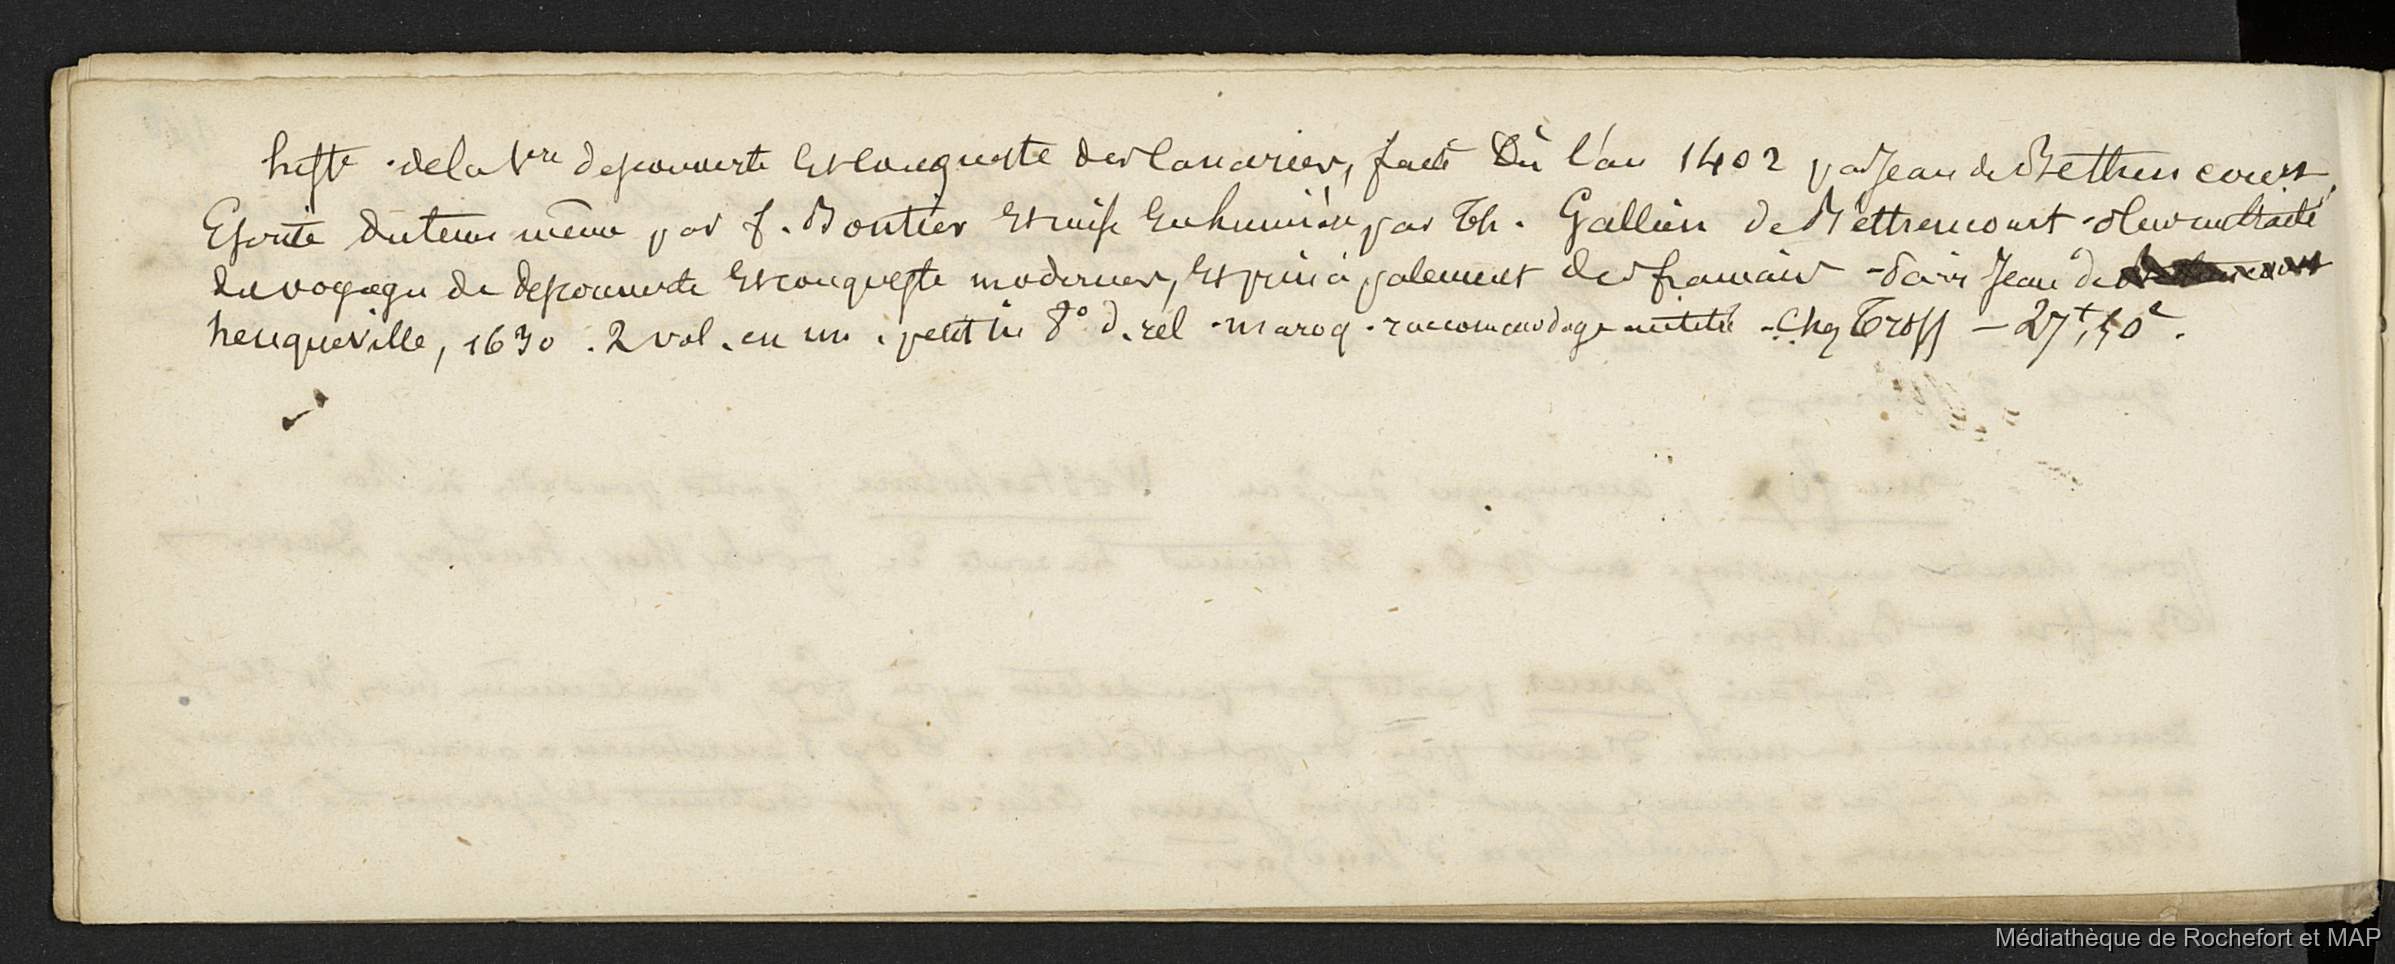 hist.re de la 1ere descouverte et conqueste des Canaries, faite Dès l'an 1402 par Jean de Bethencourt,
Escrite du tems même par f. Bontier et mise en lumière par Th. Gallien de Bettencourt - plus un traité
du voyage de descouverte et conqueste modernes, et principalement des françois - Paris Jean de
heuqueville, 1630. 2 vol. en un. petit in 8° d. rel - maroq - raccomodage au titre - Chez Tross - 27+, 50c.
Médiathèque de Rochefort et MAP